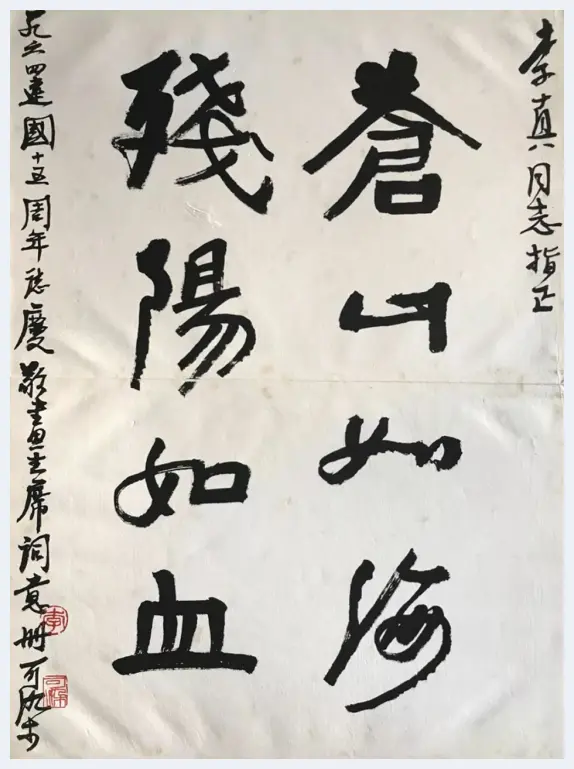 李真同志指正
蒼山如海
殘陽如血
一九六四建國十五周年誌慶敬畫主席詞意冊可染
李
可染